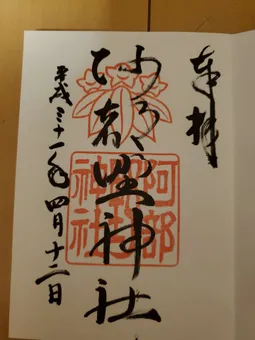 奉拝
阿部野神社
平成三十一年四月十二日
阿部野神社